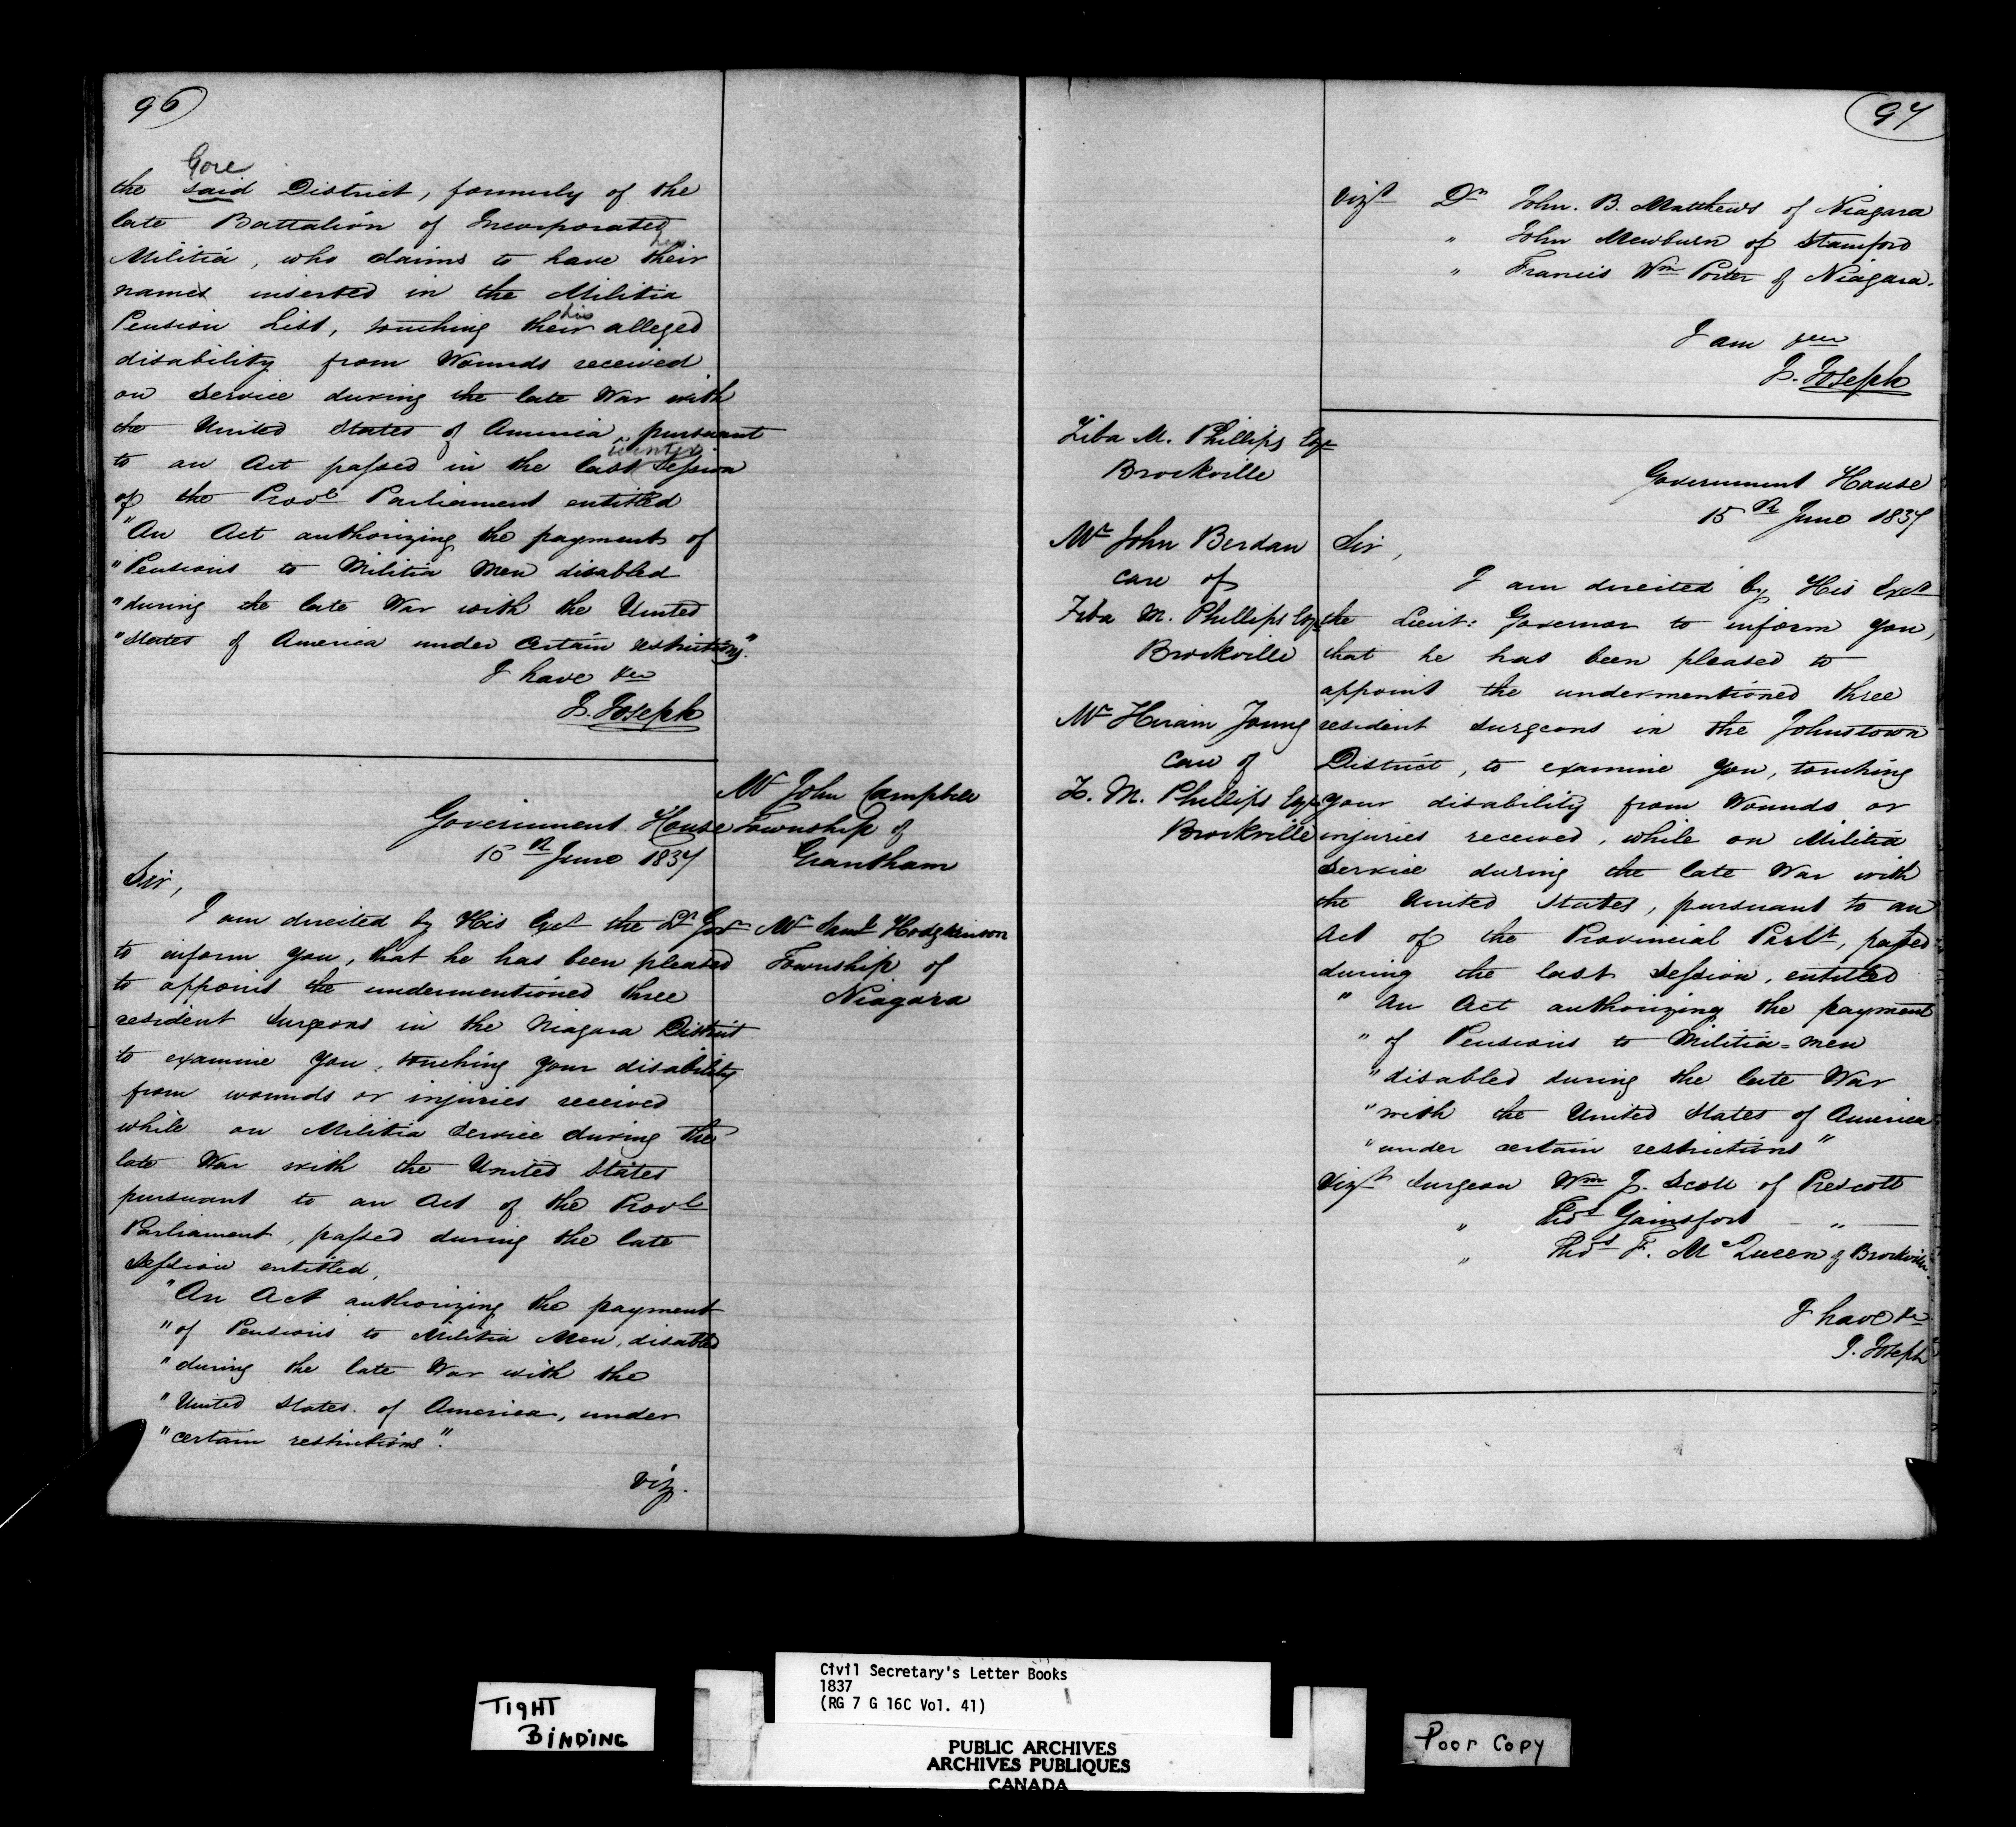 96
Gore
the said District, formerly of the
late Battalion of Incorporated
his
Militia, who claims to have their
names inserted in the Militia
his
Pension List, touching their alleged
disability from Wounds received
on Service during the late War with
the United States of America, pursuant
winter
to an Act passed in the last Session
of the Provl Parliament entitled
"An Act authorizing the payment of
"Pensions to Militia Men disabled
"during the late War with the United
"States of America under certain restrictions."
I have &c
J. Joseph
Mr John Campbell
Township of
Grantham
Mr Saml Hodgkinson
Township of
Niagara
Government House
15th June 1837
Sir,
I am directed by His Exct the Lt Govr
to inform you, that he has been pleased
to appoint the undermentioned three
resident Surgeons in the Niagara District
to examine you, touching your disability
from wounds or injuries received
while on Militia Service during the
late War with the United States
pursuant to an Act of the Provl
Parliament, passed during the late
Session entitled,
"An Act authorizing the payment
"of Pensions to Militia Men, disabled
"during the late War with the
"United States of America, under
"certain restrictions".
Viz.
97
Vizt Dr John. B. Matthews of Niagara
" John Mewburn of Stamford
" Francis Wm Porter of Niagara.
I am &c
J. Joseph
Ziba M. Phillips Esqr
Brockville
Mr John Berdan
care of
Ziba M. Phillips Esqr
Brockville
Mr Hiram Young
care of
Z. M. Phillips Esqr
Brockville
Government House
15th June 1837
Sir,
I am directed by His Exct
the Lieut: Governor to inform you,
that he has been pleased to
appoint the undermentioned three
resident Surgeons in the Johnstown
District, to examine you, touching
your disability from Wounds or
injuries received, while on Militia
Service during the late War with
the United States, pursuant to an
Act of the Provincial Parlt, passed
during the last Session, entitled
" An Act authorizing the payment
" of Pensions to Militia=men
"disabled during the late War
"with the United States of America
"under certain restrictions"
Vizt Surgeon Wm J. Scott of Prescott
" Thos Gainsfort — " —
" Thos F. McQueen of Brockville.
I have &c
J. Joseph
TIGHT
BINDING
Civil Secretary's Letter Books
1837
(RG 7 G 16C Vol. 41)
PUBLIC ARCHIVES
ARCHIVES PUBLIQUES
CANADA
Poor Copy